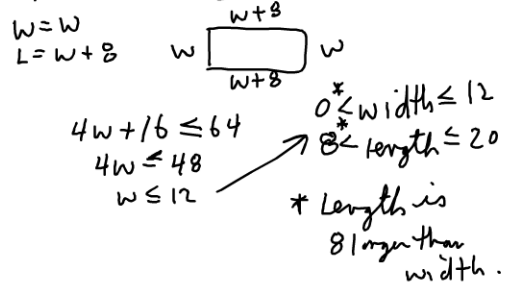 w = w
L = w + 8
w+8
w
w
w+8
4w + 16 ≤ 64
4w ≤ 48
w ≤ 12
0 *< width ≤ 12
8 *< length ≤ 20
* Length is
8 longer than
width.